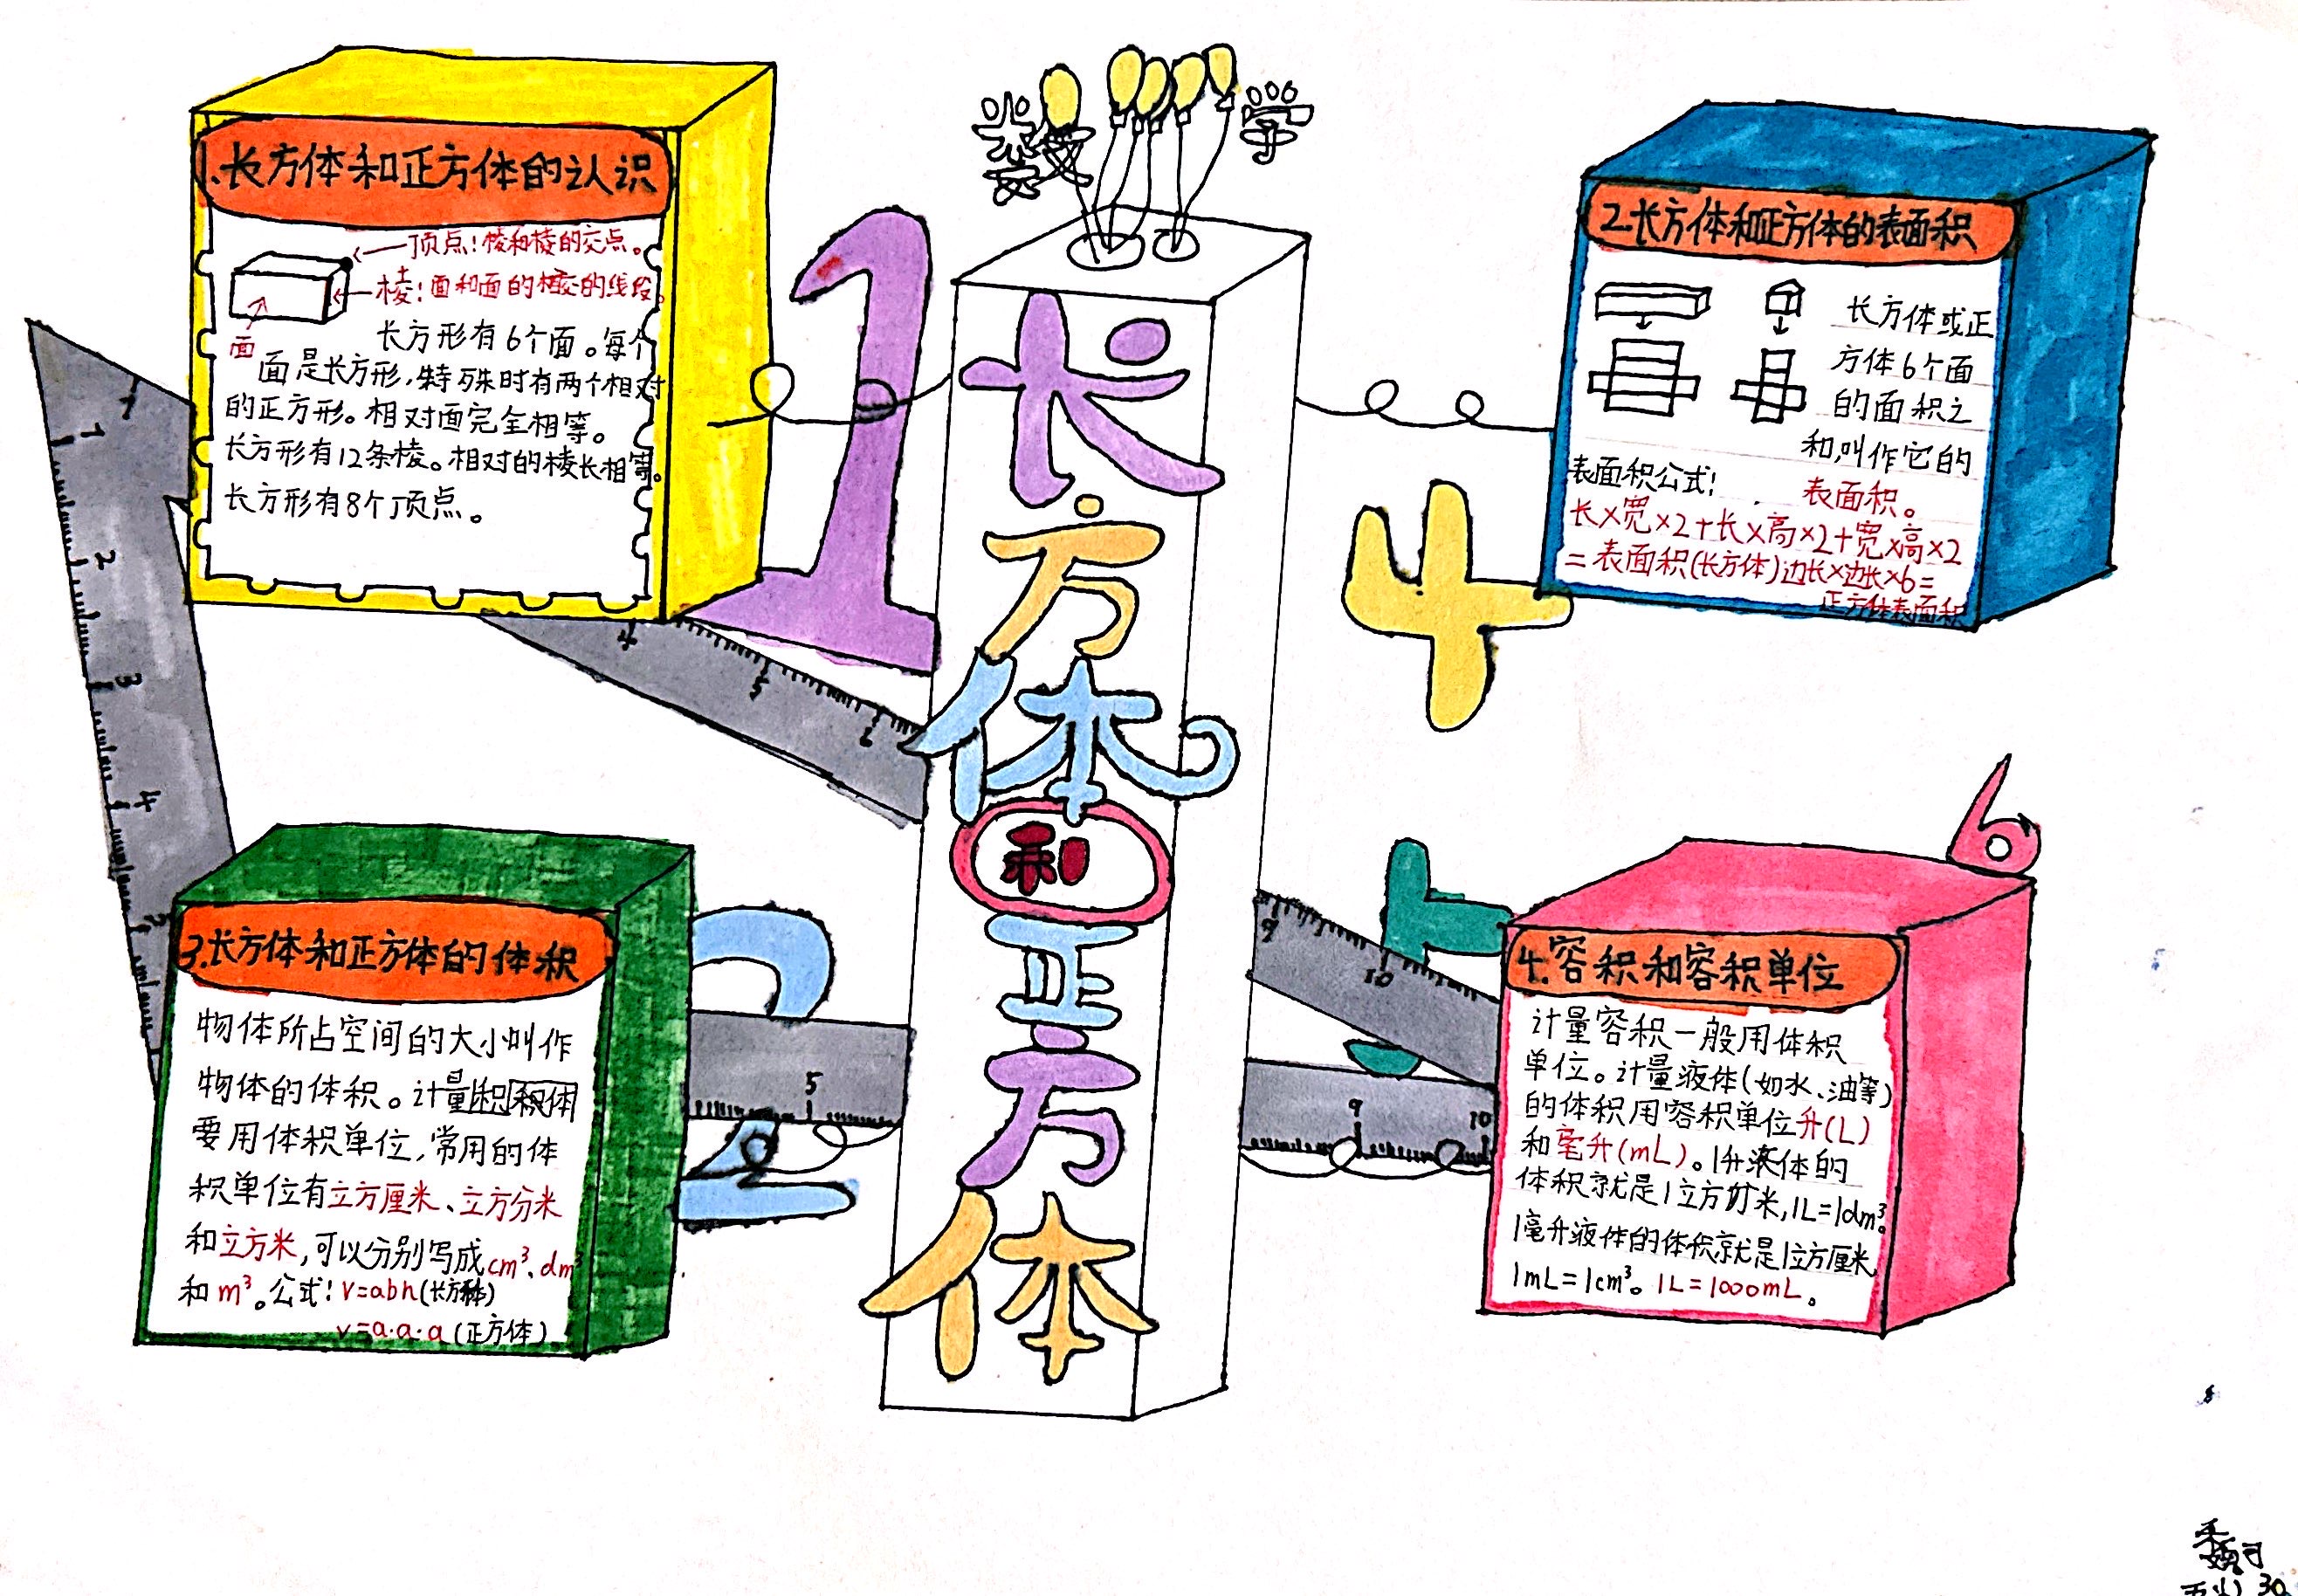 数学
长方体和正方体
1.长方体和正方体的认识
顶点:棱和棱的交点。
棱:面和面的相交的线段。
面
长方形有6个面。每个
面是长方形,特殊时有两个相对
的正方形。相对面完全相等。
长方形有12条棱。相对的棱长相等。
长方形有8个顶点。
1
2.长方体和正方体的表面积
长方体或正
方体6个面
的面积之
和,叫作它的
表面积。
表面积公式:
长×宽×2+长×高×2+宽×高×2
=表面积(长方体)边长×边长×6=
正方体表面积
4
1
2
3
4
4
5
6
3.长方体和正方体的体积
物体所占空间的大小叫作
物体的体积。计量
要用体积单位,常用的体
积单位有立方厘米、立方分米
和立方米,可以分别写成cm³、dm³
和m³。公式:V=abh(长方体)
V=a·a·a(正方体)
2
5
9
10
9
10
5
6
4.容积和容积单位
计量容积一般用体积
单位。计量液体(如水、油等)
的体积用容积单位升(L)
和毫升(mL)。1升液体的
体积就是1立方分米,1L=1dm³。
1毫升液体的体积就是1立方厘米,
1mL=1cm³。1L=1000mL。
30